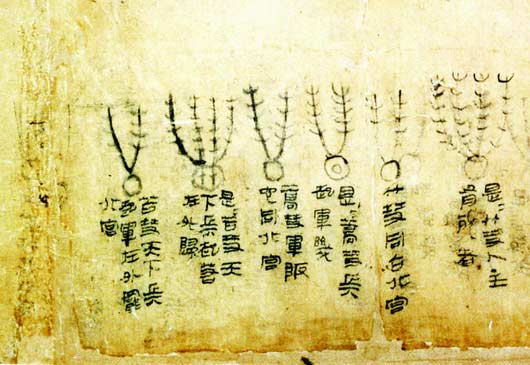 是竹彗人主
有死者
竹彗同占北宮
是蒿彗兵
起軍幾
蒿彗軍阪
它同北宮
是苫彗天
下兵起若
在外歸
苫彗天下兵
起軍在外罷
北宮